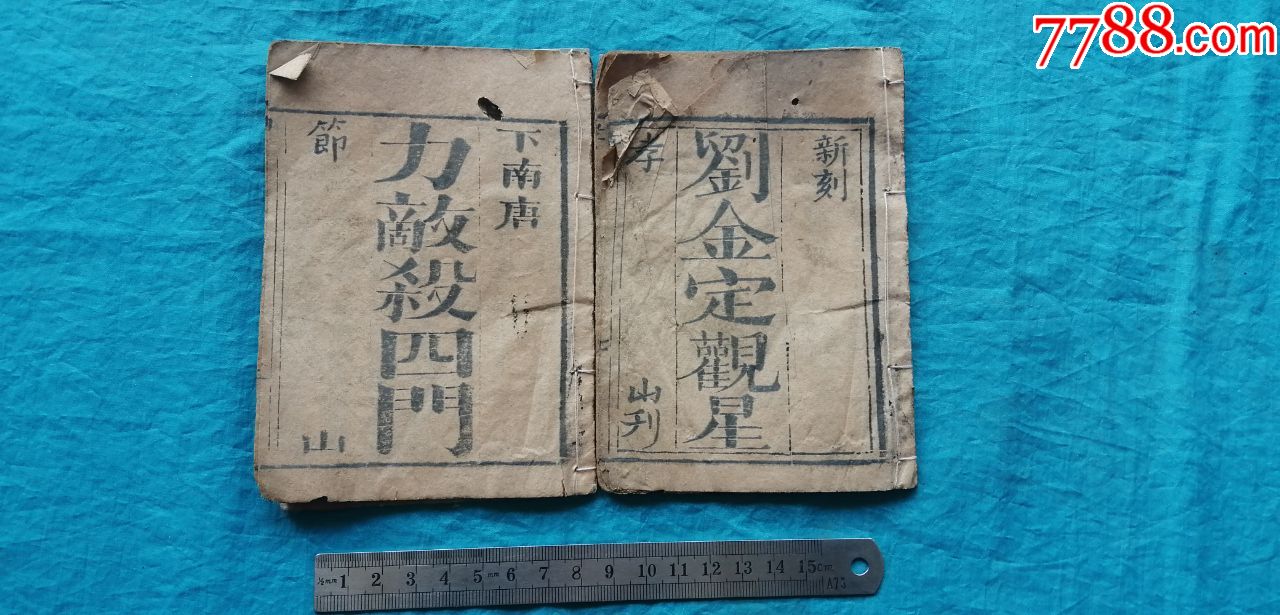 7788.com
新刻
劉金定觀星
孝
山刋
下南唐
力敵殺四門
節
山
½mm 1 2 3 4 5 mm 6 7 8 9 10 11 12 13 14 15cm
A73